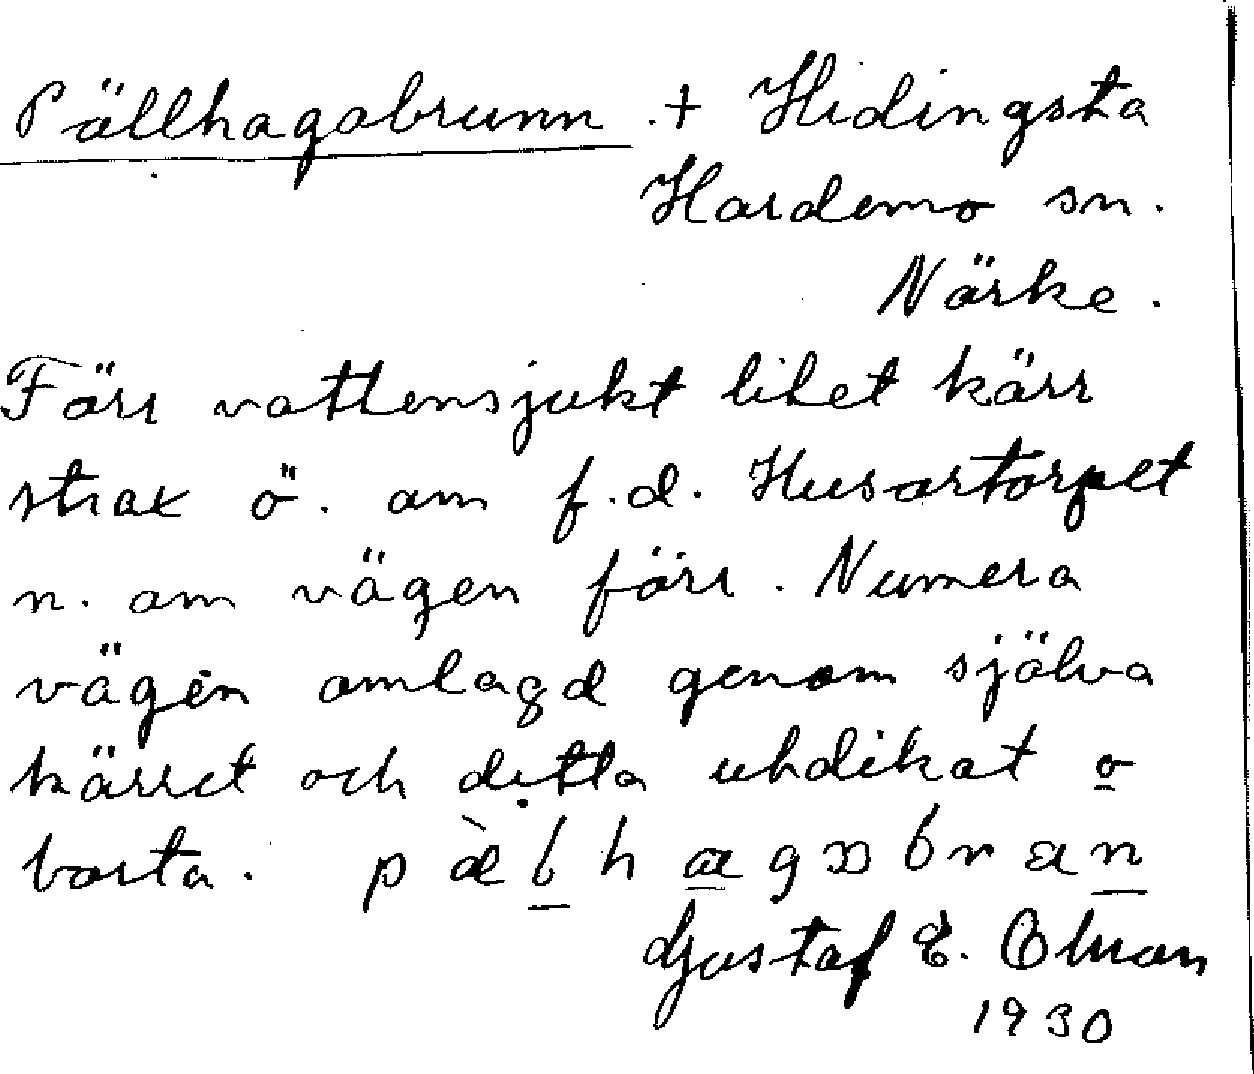 Pällhagabrunn + Hidingsta
Hardemo sn.
Närke.
Förr vattensjukt litet kärr
strax ö. om f.d. Husartorpet
n. om vägen förr. Numera
vägen omlagd genom själva
kärret och detta utdikat o
borta.
Gustaf E.
1930